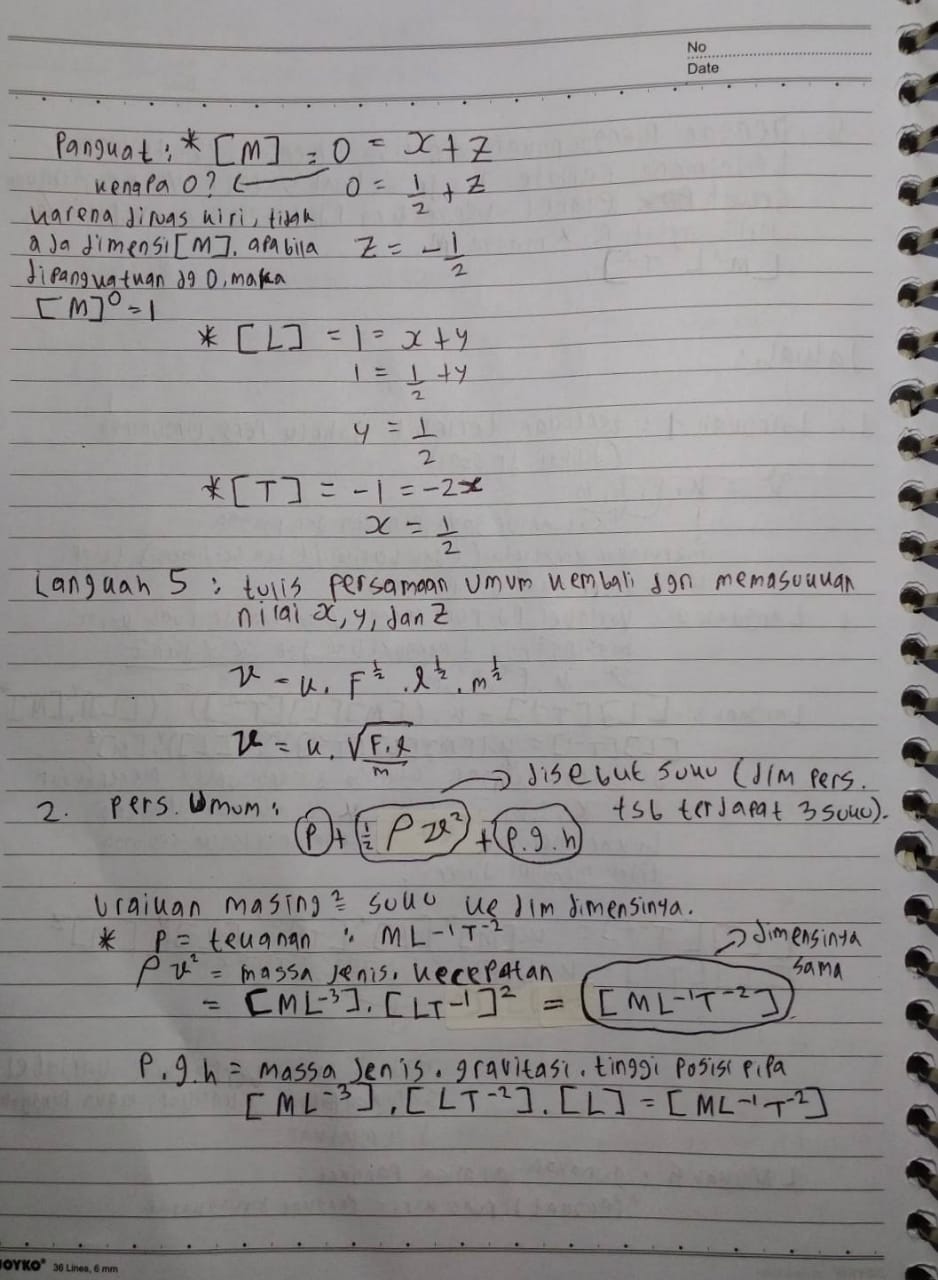 No
Date
Panguat : * [M] = 0 = x + z
kengpa 0? ← 0 = 1/2 + z
karena diruas kiri, tidak
ada dimensi [M]. apabila z = -1/2
dipangkatkan dg 0, maka
[M]⁰ = 1
* [L] = 1 = x + y
1 = 1/2 + y
y = 1/2
* [T] = -1 = -2x
x = 1/2
Langkah 5 : tulis persamaan umum kembali dgn memasukkan
nilai x, y, dan z
v = k. F^½ . l^½ . m^½
v = k. √(F.l/m)
→ disebut suku (dlm pers.
2. Pers. Umum : P + ½ ρv² + ρ.g.h tsb terdapat 3 suku).
Uraikan masing² suku ke dlm dimensinya.
* P = tekanan : ML⁻¹T⁻² → dimensinya
ρv² = massa jenis. kecepatan sama
= [ML⁻³]. [LT⁻¹]² = [ML⁻¹T⁻²]
ρ.g.h = massa jenis. gravitasi. tinggi posisi pipa
[ML⁻³]. [LT⁻²]. [L] = [ML⁻¹T⁻²]
JOYKO® 36 Lines, 6 mm